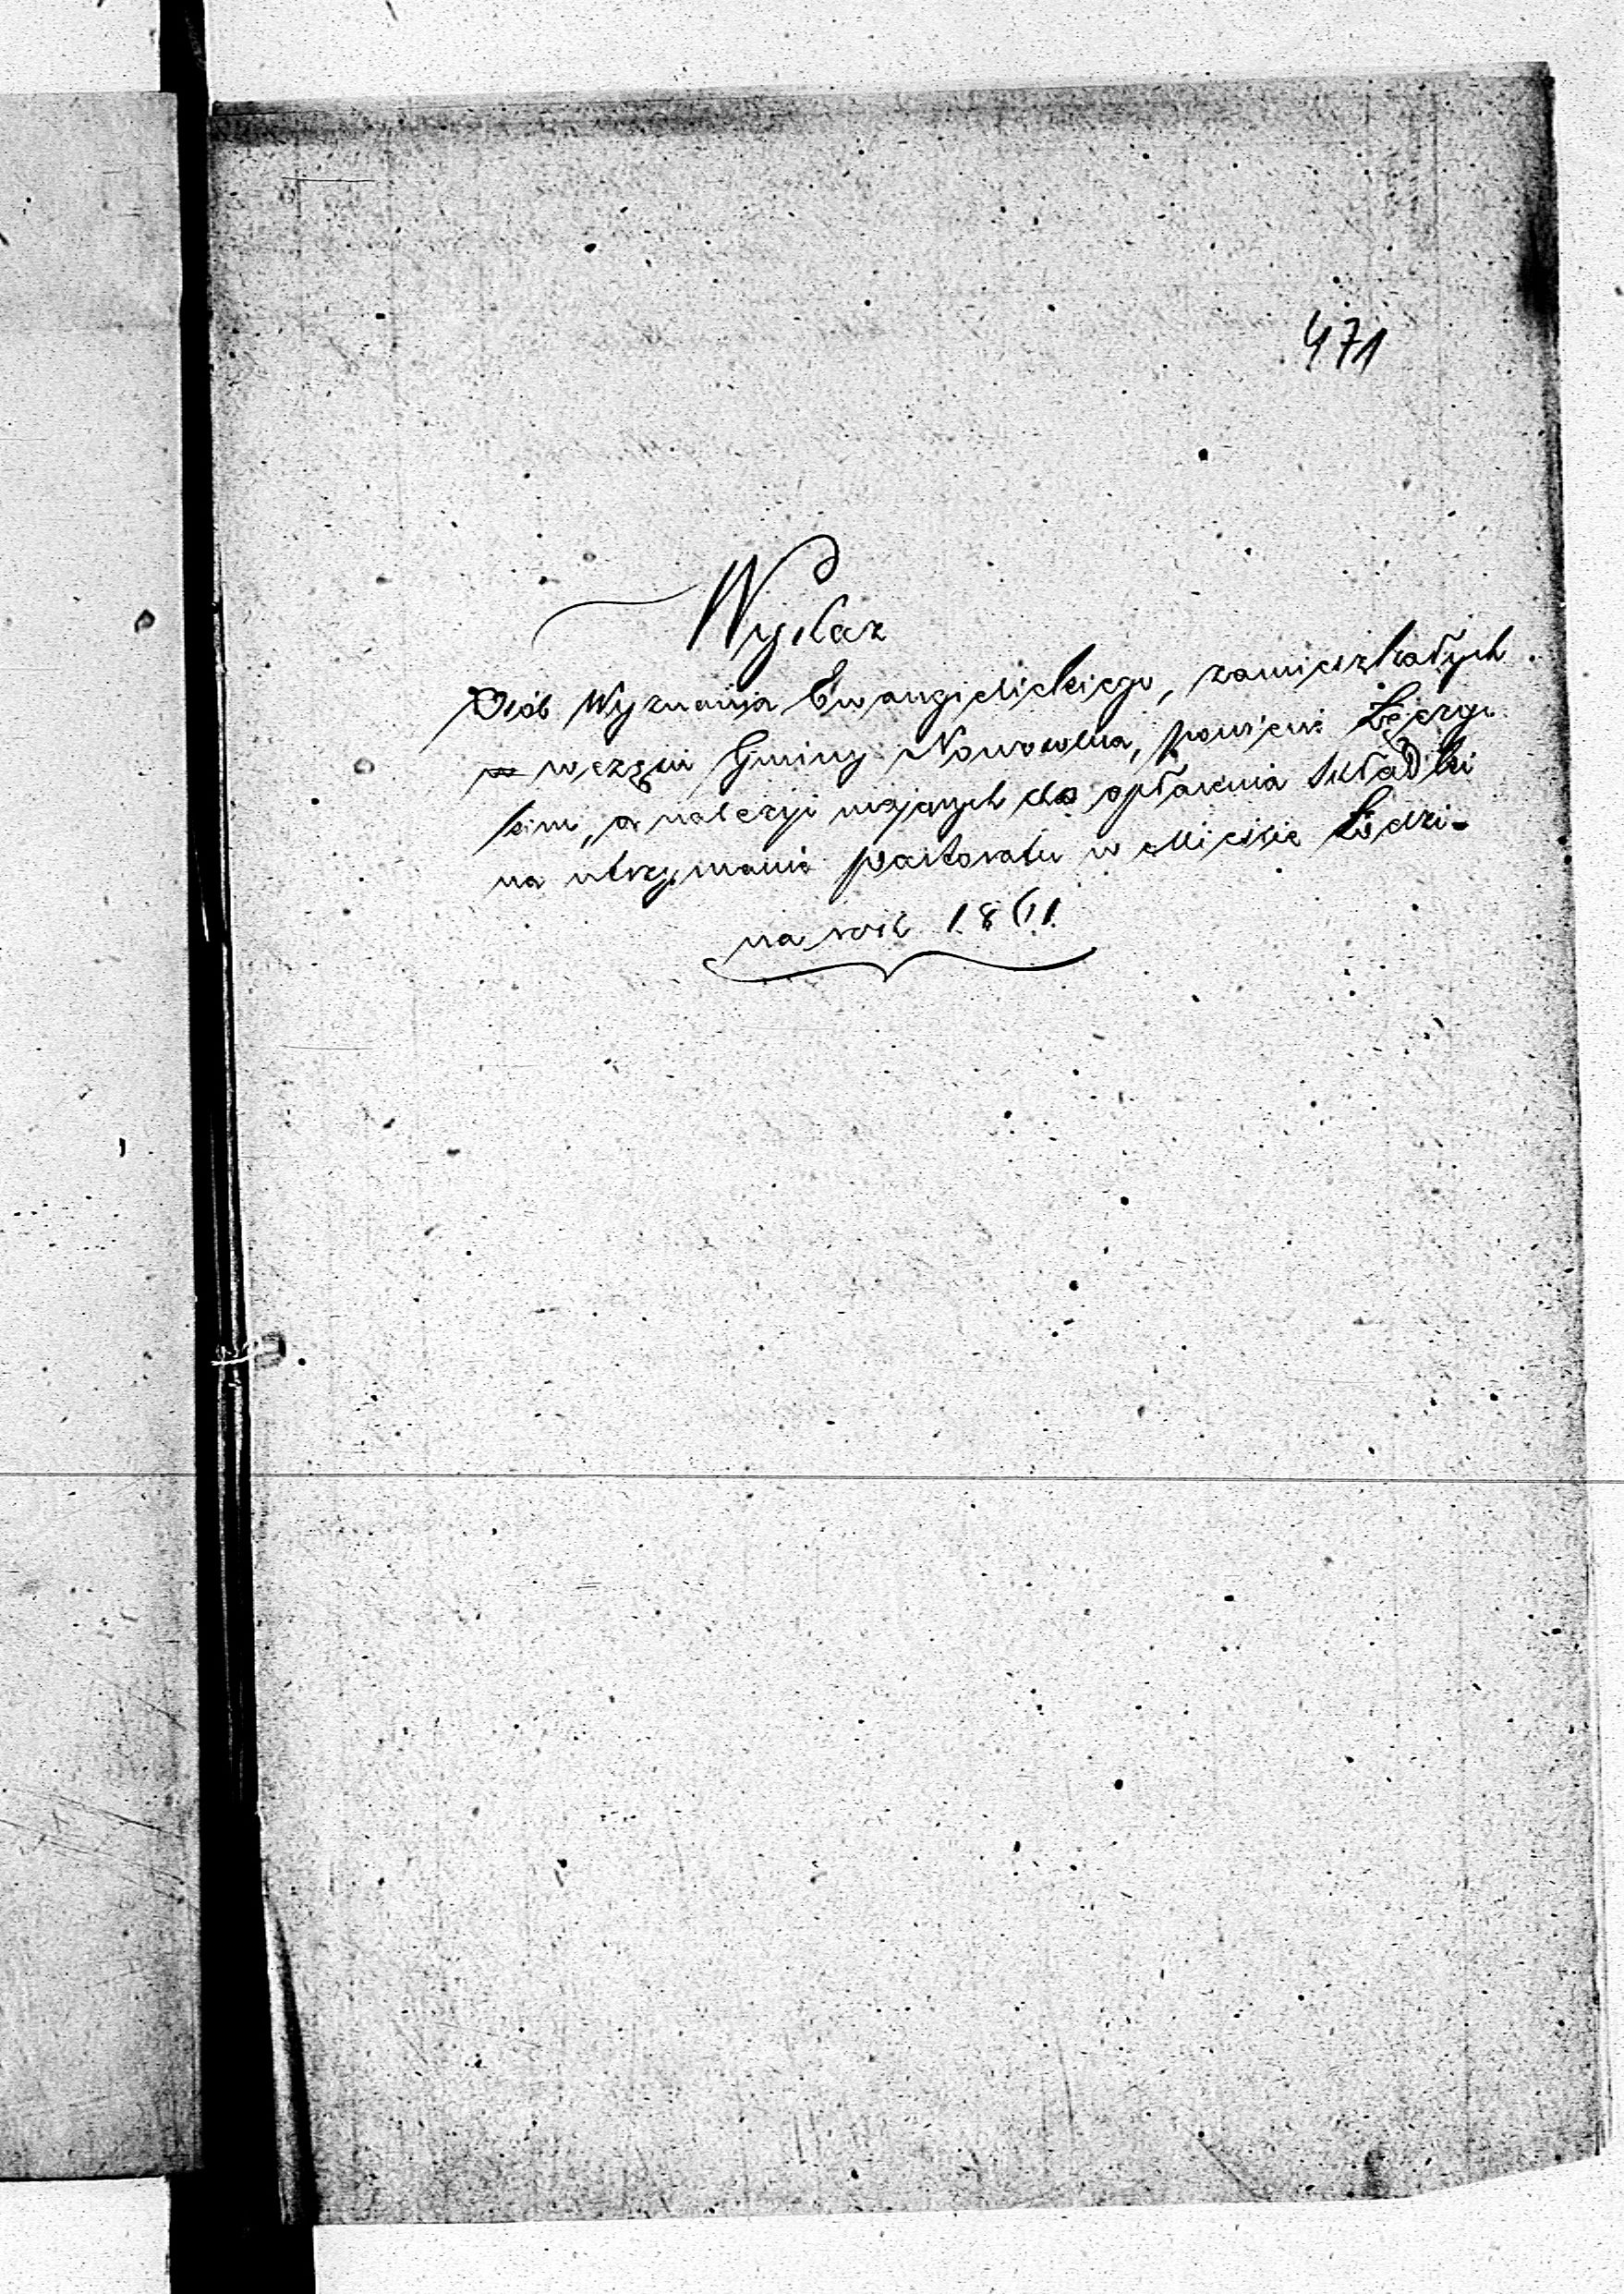 471
Wykaz
Osób Wyznania Ewangielickiego, zamieszkałych
w częsci Gminy Nowosolna, powiecie Łęczyc
kim, a należyć mających do opłacenia składki
na utrzymanie pastoratu w Mieście Łodzi
na rok 1861